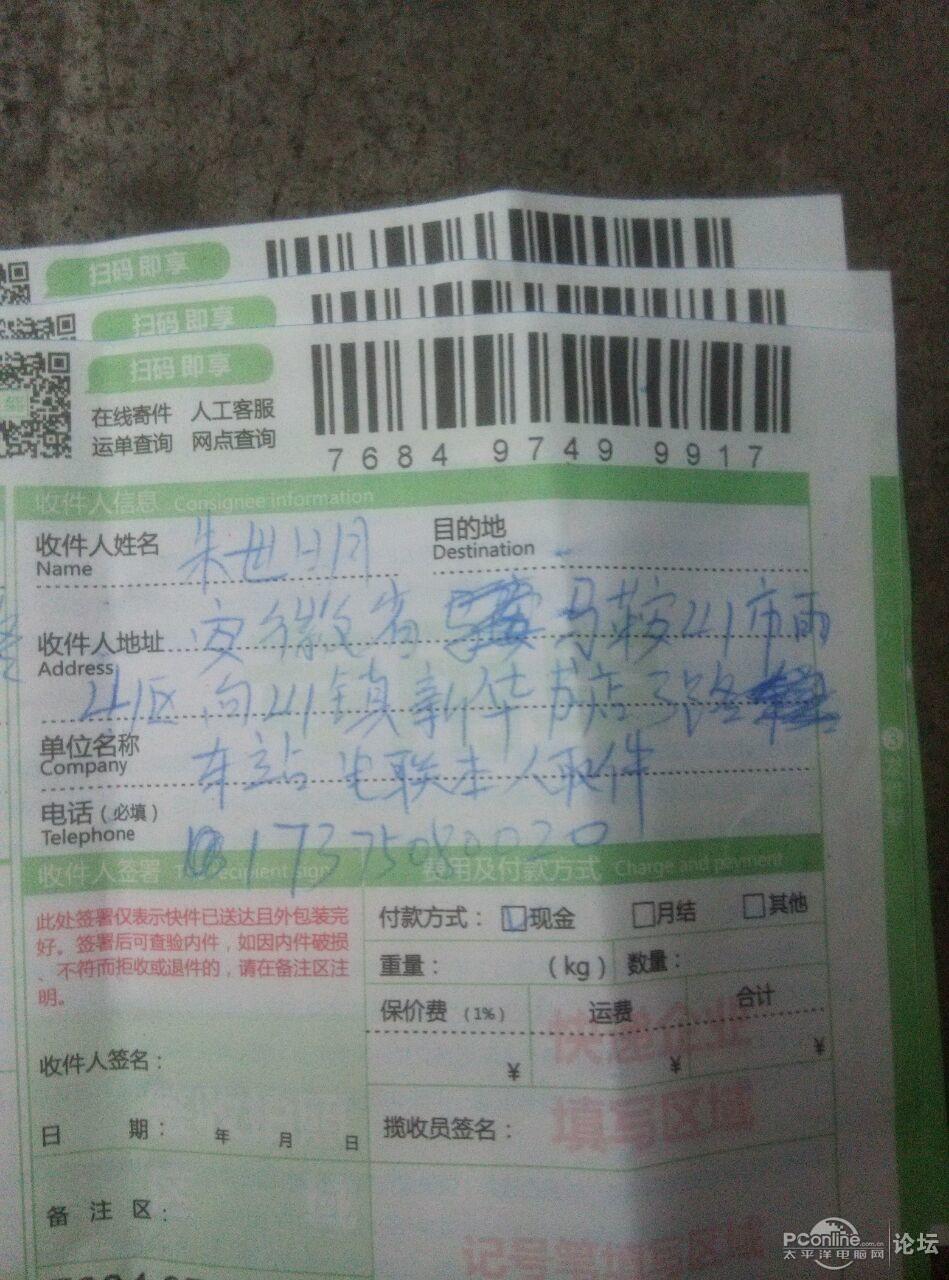 扫码即享
扫码即享
扫码即享
在线寄件 人工客服
运单查询 网点查询
7684 9749 9917
收件人信息 Consignee information
收件人姓名 朱世明 目的地
Name Destination
收件人地址 安徽省 马鞍山市雨
Address
山区向山镇新华书店3路
单位名称 车站 电联本人取件
Company
电话（必填）
Telephone
收件人签署 The recipient sign 费用及付款方式 Charge and payment
此处签署仅表示快件已送达且外包装完
好。签署后可查验内件，如因内件破损
、不符而拒收或退件的，请在备注区注
明。
付款方式： 现金 月结 其他
重量： （kg） 数量：
保价费（1%） 运费 合计
¥ ¥ ¥
快递企业
填写区域
收件人签名：
日 期： 年 月 日
揽收员签名：
备 注 区：
PConline.com.cn
太平洋电脑网 论坛